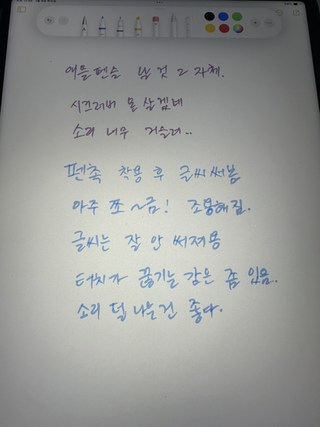 애플펜슬 날 것 그 자체.
시끄러버 못 살겠네
소리 너무 거슬려...
펜촉 착용 후 글씨써봄
아주 쪼~금! 조용해짐.
글씨는 잘 안 써져용
터치가 끊기는 감은 좀 있음.
소리 덜 나는건 좋다.